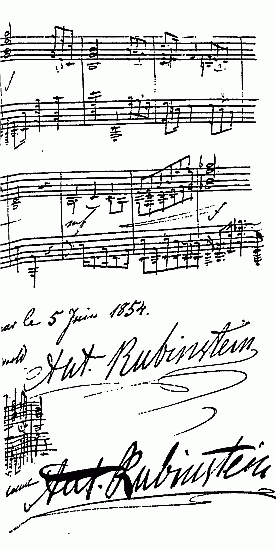 le 5 Juin 1854.
Ant. Rubinstein
Ant. Rubinstein